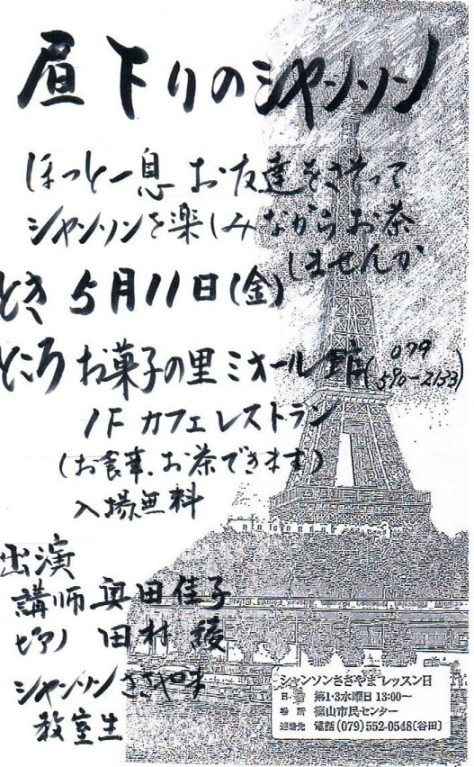 昼下りのシャンソン
ほっと一息 お友達をさそって
シャンソンを楽しみながらお茶
しませんか
とき 5月11日(金)
ところ お菓子の里ミオール館(079
590-2153)
1F カフェレストラン
(お食事、お茶できます)
入場無料
出演
講師 奥田佳子
ピアノ 田村 綾
シャンソンささやま
教室生
シャンソンささやま レッスン日
日 時 第1・3水曜日 13:00〜
場 所 篠山市民センター
連絡先 電話(079)552-0548〔谷田〕